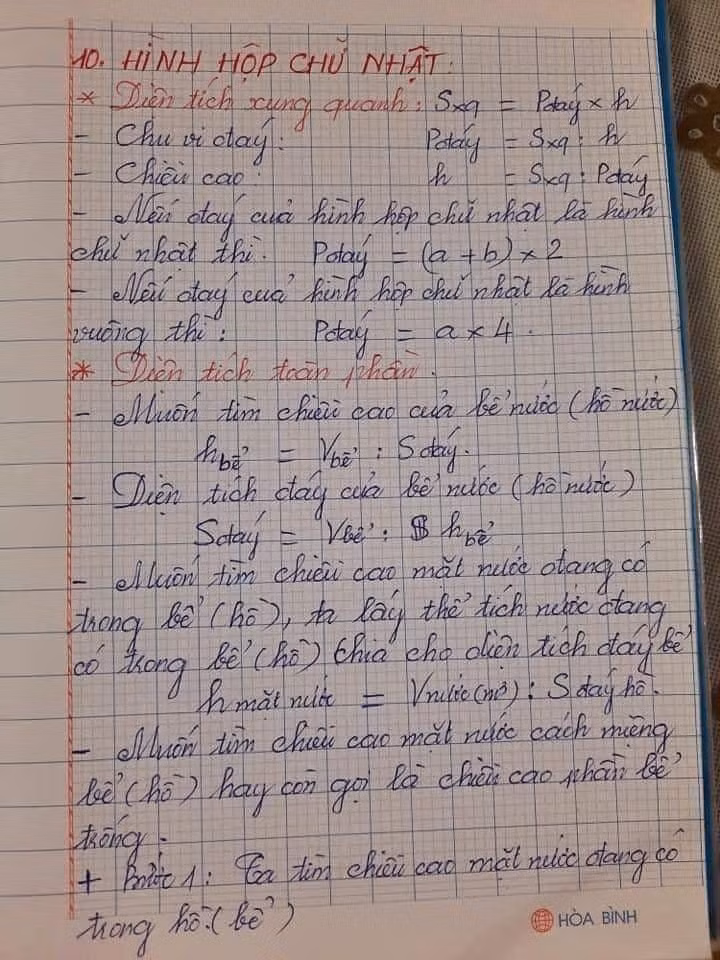 10. HÌNH HỘP CHỮ NHẬT:
* Diện tích xung quanh: Sxq = Pđáy × h
- Chu vi đáy: Pđáy = Sxq : h
- Chiều cao: h = Sxq : Pđáy
- Nếu đáy của hình hộp chữ nhật là hình
chữ nhật thì: Pđáy = (a + b) × 2
- Nếu đáy của hình hộp chữ nhật là hình
vuông thì: Pđáy = a × 4.
* Diện tích toàn phần.
- Muốn tìm chiều cao của bể nước (hồ nước)
hbể = Vbể : Sđáy.
- Diện tích đáy của bể nước (hồ nước)
Sđáy = Vbể : hbể
- Muốn tìm chiều cao mặt nước đang có
trong bể (hồ), ta lấy thể tích nước đang
có trong bể (hồ) chia cho diện tích đáy bể
h mặt nước = Vnước (m3) : Sđáy hồ.
- Muốn tìm chiều cao mặt nước cách miệng
bể (hồ) hay còn gọi là chiều cao phần bể
trống.
+ Bước 1: Ta tìm chiều cao mặt nước đang có
trong hồ.(bể)
HÒA BÌNH